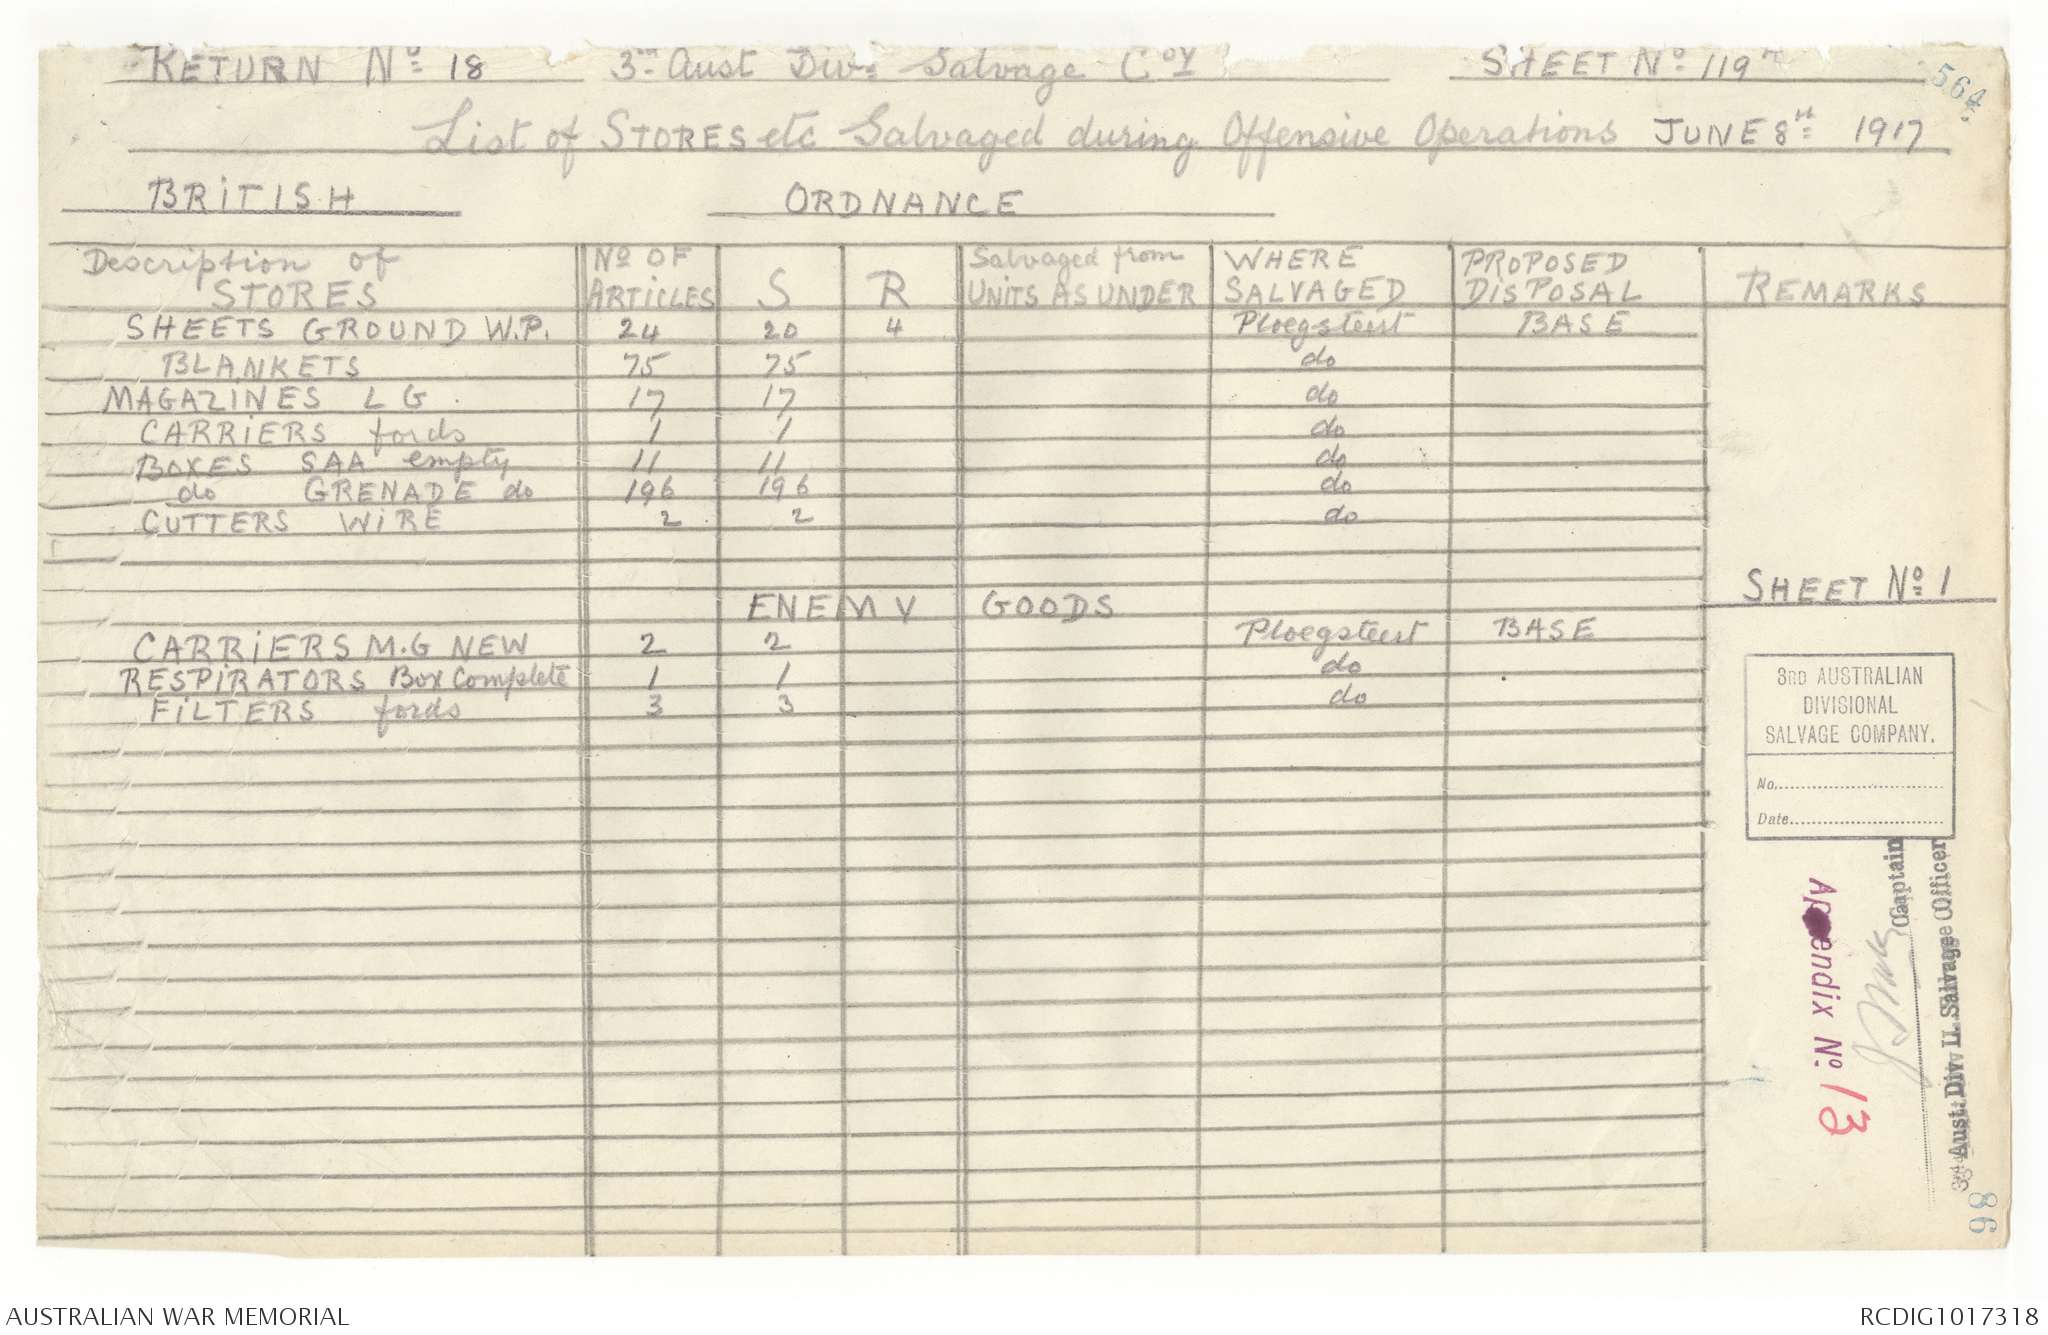 RETURN Nº 18 3rd Aust Div. Salvage Coy SHEET Nº 119
564
List of STORES etc Salvaged during Offensive Operations JUNE 8th 1917
BRITISH ORDNANCE
Description of STORES Nº OF ARTICLES S R Salvaged from UNITS AS UNDER WHERE SALVAGED PROPOSED DISPOSAL REMARKS
SHEETS GROUND W.P. 24 20 4 Ploegsteert BASE
BLANKETS 75 75 do
MAGAZINES L G. 17 17 do
CARRIERS fords 1 1 do
BOXES SAA empty 11 11 do
do GRENADE do 196 196 do
CUTTERS WIRE 2 2 do
SHEET Nº 1
ENEMY GOODS
CARRIERS M.G NEW 2 2 Ploegsteert BASE
RESPIRATORS Box Complete 1 1 do
FILTERS fords 3 3 do
3RD AUSTRALIAN
DIVISIONAL
SALVAGE COMPANY.
No.
Date
Captain
Aust. Div. Salvage Officer
Appendix Nº 13
86
AUSTRALIAN WAR MEMORIAL RCDIG1017318